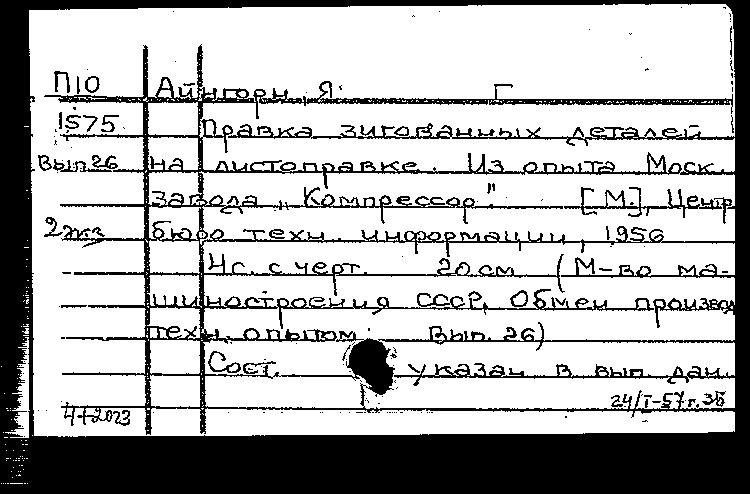 П10 Айнгорн, Я. Г
1575 Правка зигованных деталей
Вып.26 на листоправке. Из опыта Моск.
завода „Компрессор" [М.], Центр
2экз бюро техн. информации, 1956
4с. с черт. 20 см (М-во ма-
шиностроения СССР, Обмен производ
техн. опытом. Вып. 26)
Сост. указан в вып. дан.
24/I-57г.